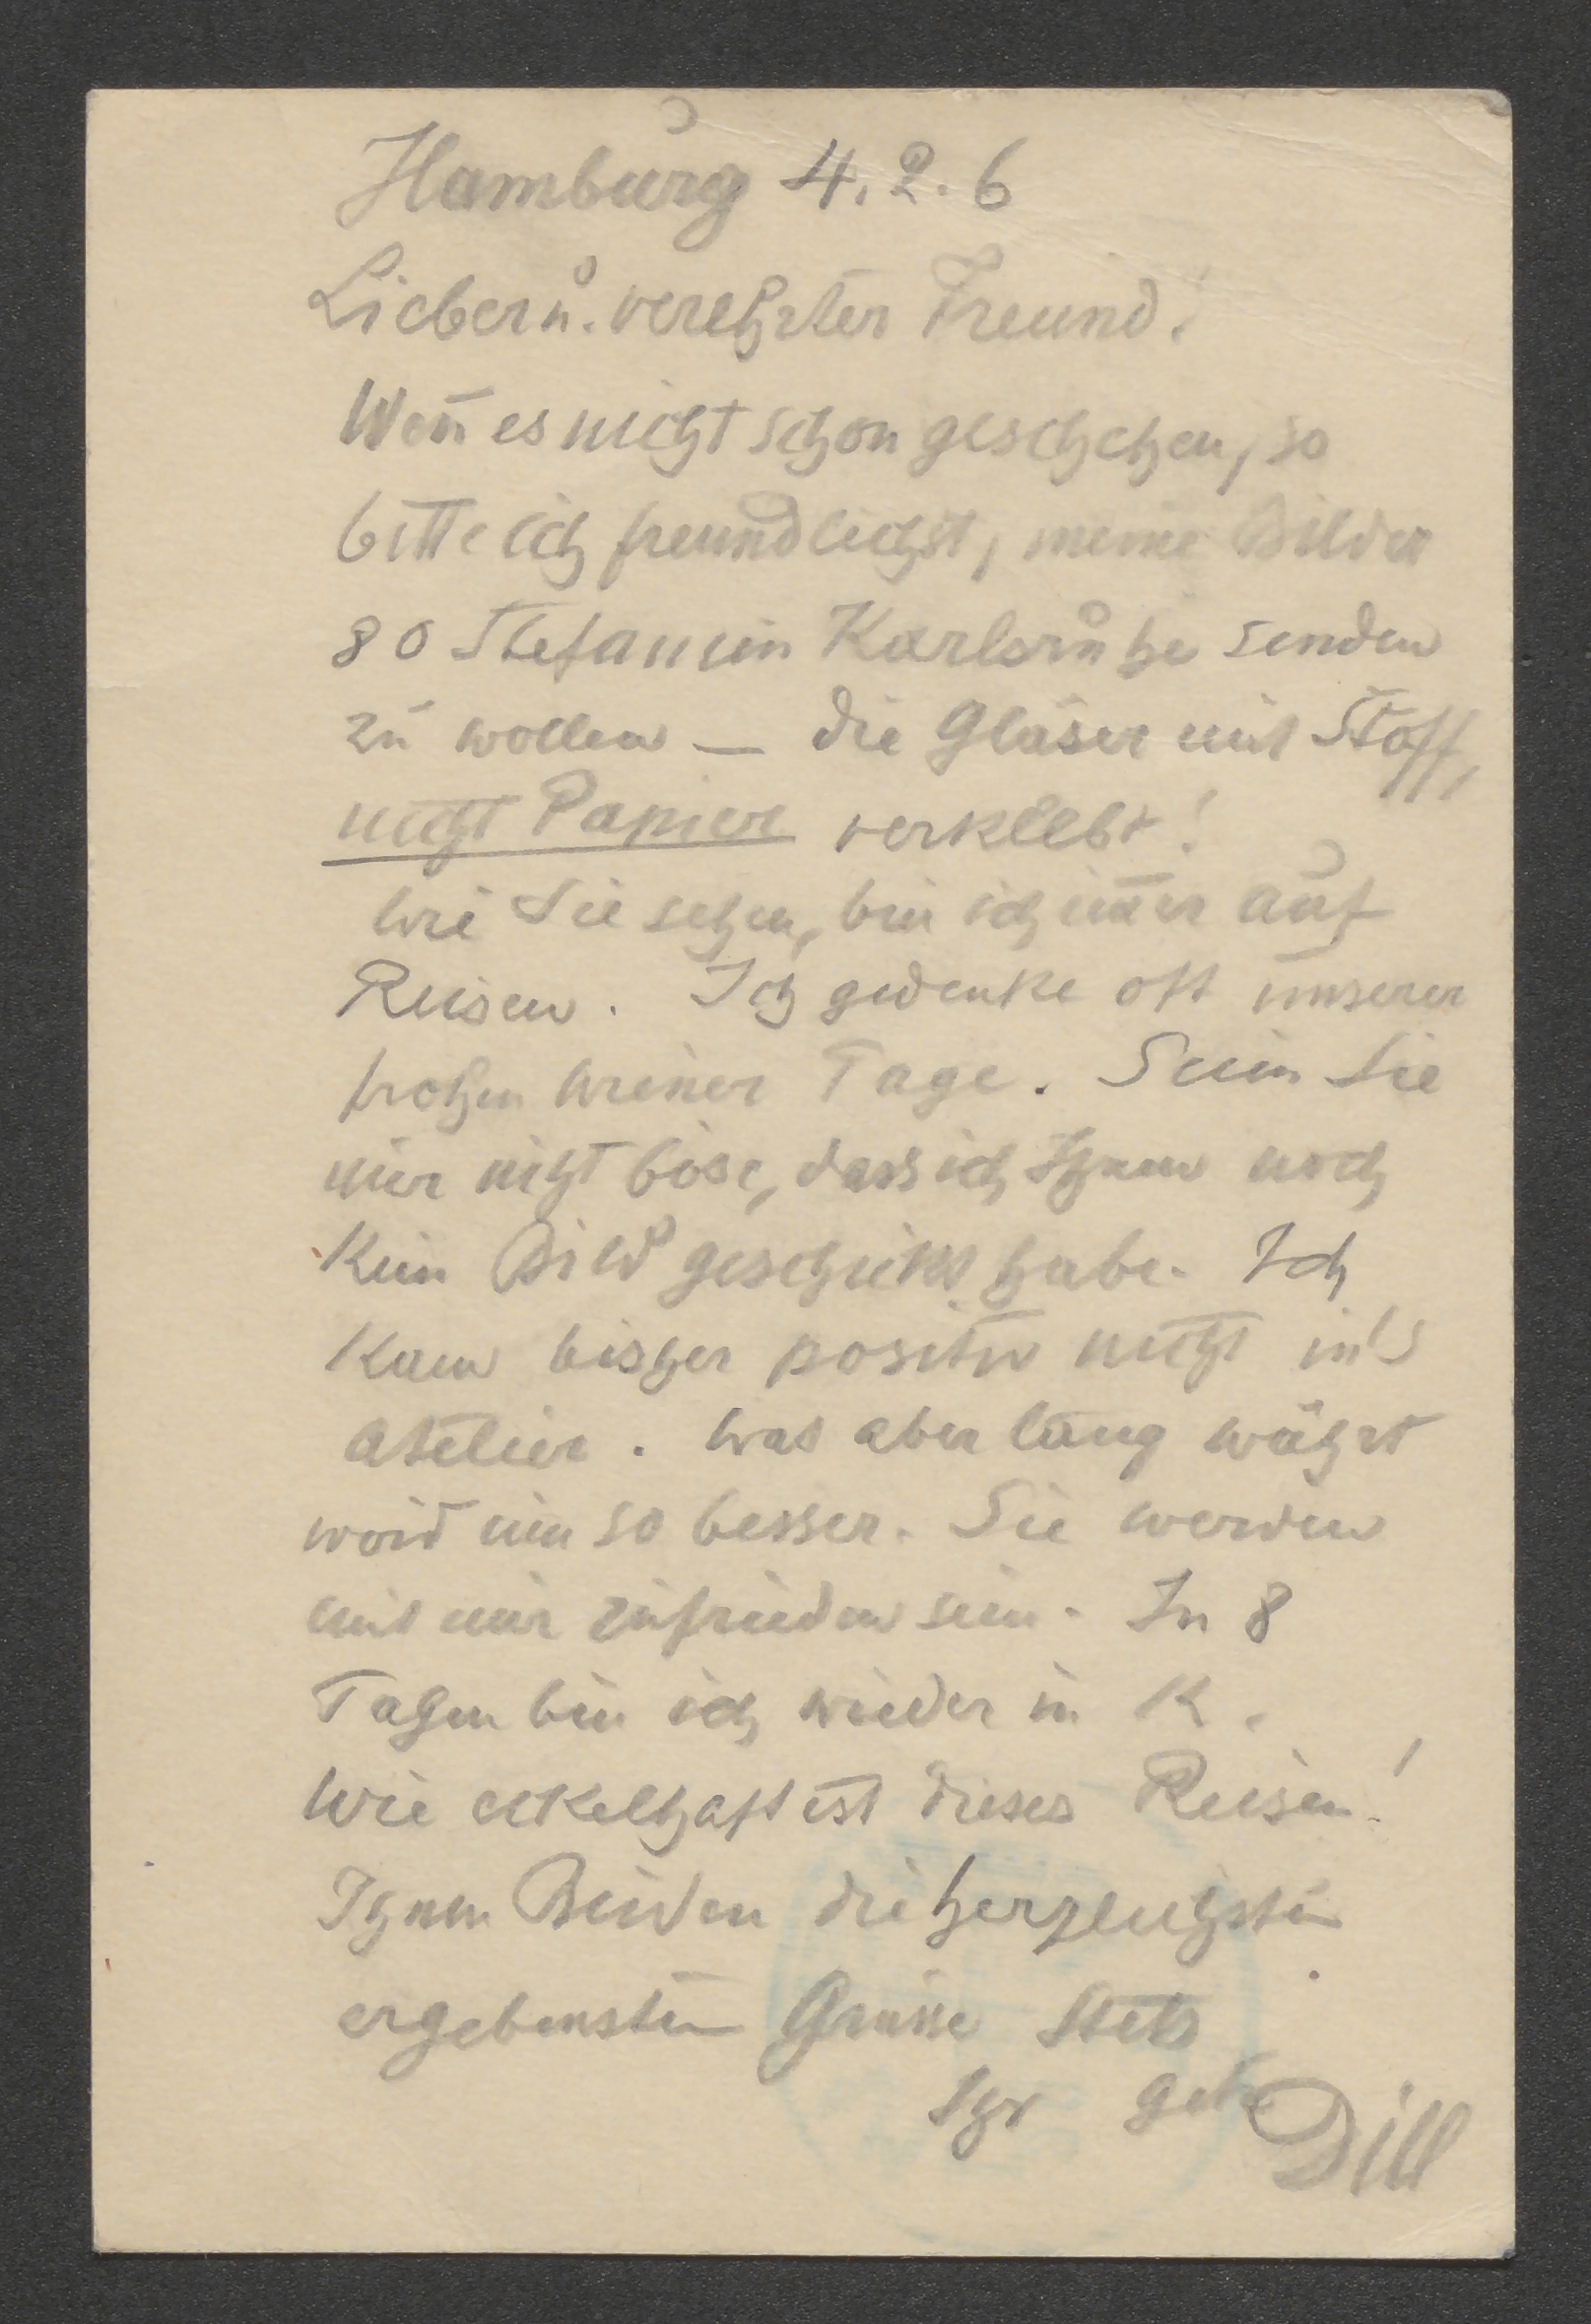 Hamburg 4. 2. 6
Lieber u. verehrter Freund!
Wen̄ es nicht schon geschehen, so
bitte ich freundlichst, meine Bilder
80 Stefanien Karlsruhe senden
zu wollen — die Gläser mit Stoff,
nicht Papier verklebt!
Wie Sie sehen, bin ich im̄er auf
Reisen. Ich gedenke oft unserer
frohen Wiener Tage. Seien Sie
mir nicht böse, dass ich Ihnen noch
kein Bild geschickt habe. Ich
kam bisher positiv nicht in's
Atelier. Was aber lang währt
wird um so besser. Sie werden
mit mir zufrieden sein. In 8
Tagen bin ich wieder in K.
Wie eckelhaft ist dieses Reisen!
Ihnen Beiden die herzlichsten
ergebensten Grüsse Stets
Ihr getr. Dill